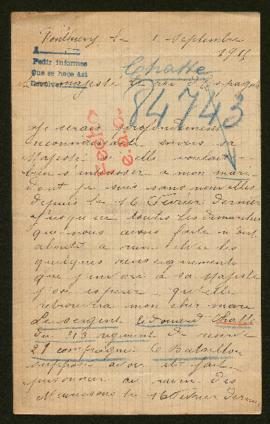 Fontenay le 1 Septembre
1915
A
Pedir informes
Que se hace Así
Devolver
Chatte
84743
Sa Majesté le roi d'Espagne
Je serais profondément
reconnaissant envers sa
Majesté si elle voulait
bien s'intéresser à mon mari
dont je suis sans nouvelles
depuis le 16 Février dernier
jusqu'ici toutes les démarches
que nous avons faite n'ont
aboutit a rien
quelques renseignements
que j'envoie à sa Majesté
j'ose espérer qu'elle
retrouvera mon cher mari
Le sergent Edouard Chatte
du 313 régiment de
21 compagnie 6 Bataillon
avoir été fait
prisonnier au ravin des
Meurissons le 16 Février dernier